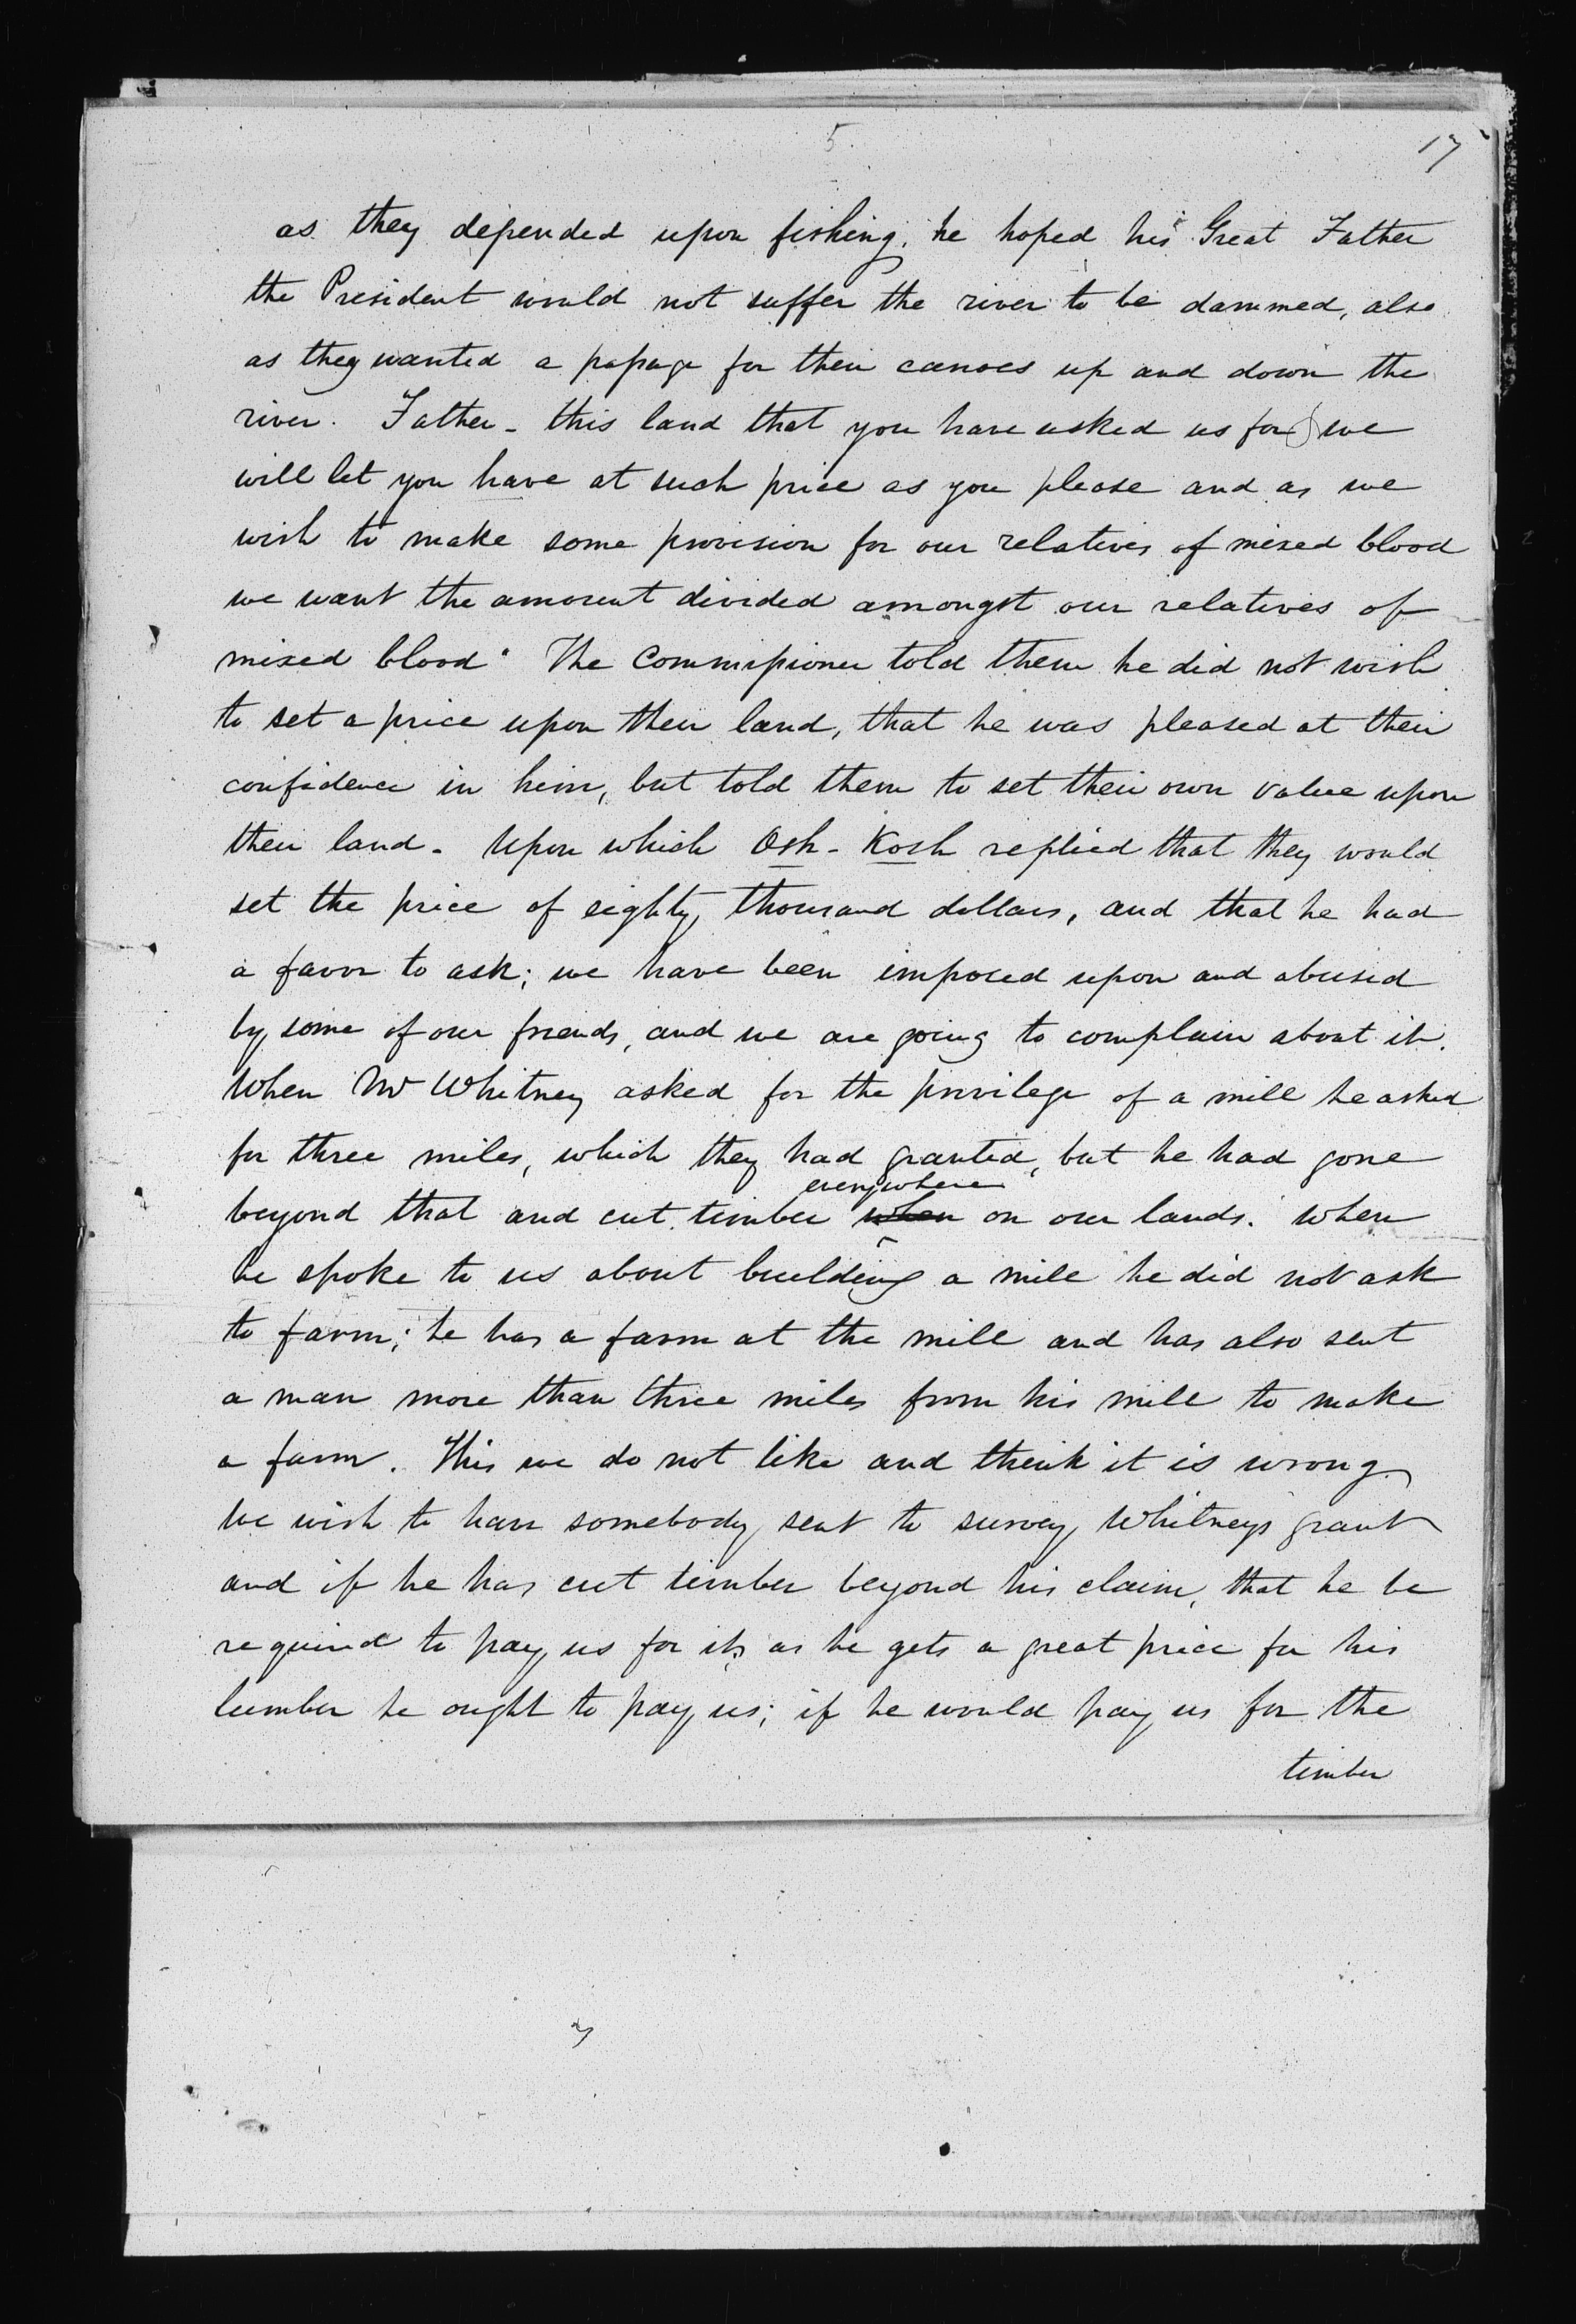 5.
17
as they depended upon fishing, he hoped his Great Father
the President would not suffer the river to be dammed, also
as they wanted a passage for their canoes up and down the
river. Father - this land that you have asked us for we
will let you have at such price as you please and as we
wish to make some provision for our relatives of mixed blood
we want the amount divided amongst our relatives of
mixed blood" The Commissioner told them he did not wish
to set a price upon their land, that he was pleased at their
confidence in him, but told them to set their own value upon
their land - Upon which Osh-Kosh replied that they would
set the price of eighty thousand dollars, and that he had
a favor to ask; we have been imposed upon and abused
by some of our friends, and we are going to complain about it.
When Mr Whitney asked for the privilege of a mill he asked
for three miles, which they had granted, but he had gone
everywhere
beyond that and cut timber when on our lands. When
he spoke to us about building a mill he did not ask
to farm; he has a farm at the mill and has also sent
a man more than three miles from his mill to make
a farm. This we do not like and think it is wrong
we wish to have somebody sent to survey Whitneys grant
and if he has cut timber beyond his claim, that he be
required to pay us for it; as he gets a great price for his
lumber he ought to pay us; if he would pay us for the
timber